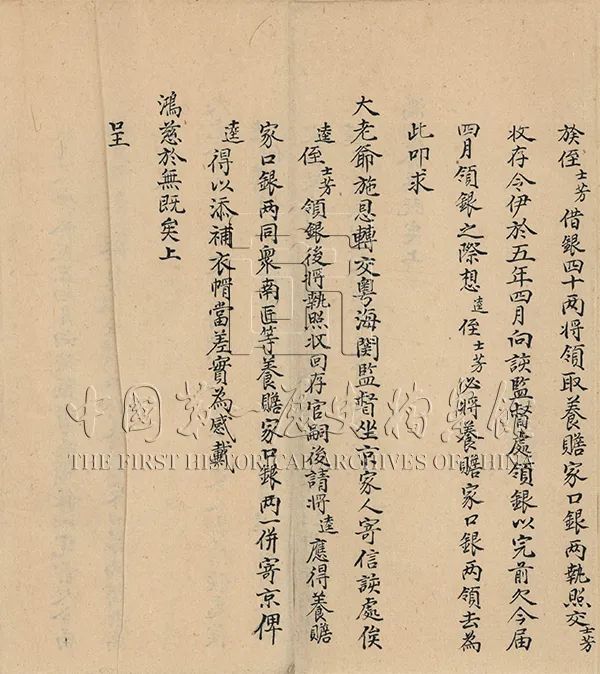 族侄士芳借銀四十兩將領取養贍家口銀兩執照交士芳
收存令伊於五年四月向該監督處領銀以完前欠今届
四月領銀之際想逵侄士芳必將養贍家口銀两領去為
此叩求
大老爺施恩轉交粵海関監督坐京家人寄信該處俟
逵侄士芳領銀後將執照收回存官嗣後請將逵應得養贍
家口銀两同衆南匠等養贍家口銀两一併寄京俾
逵得以添補衣帽當差實為感戴
鴻慈於無既矣上
呈
中國第一歷史檔案館
THE FIRST HISTORICAL ARCHIVES OF CHINA